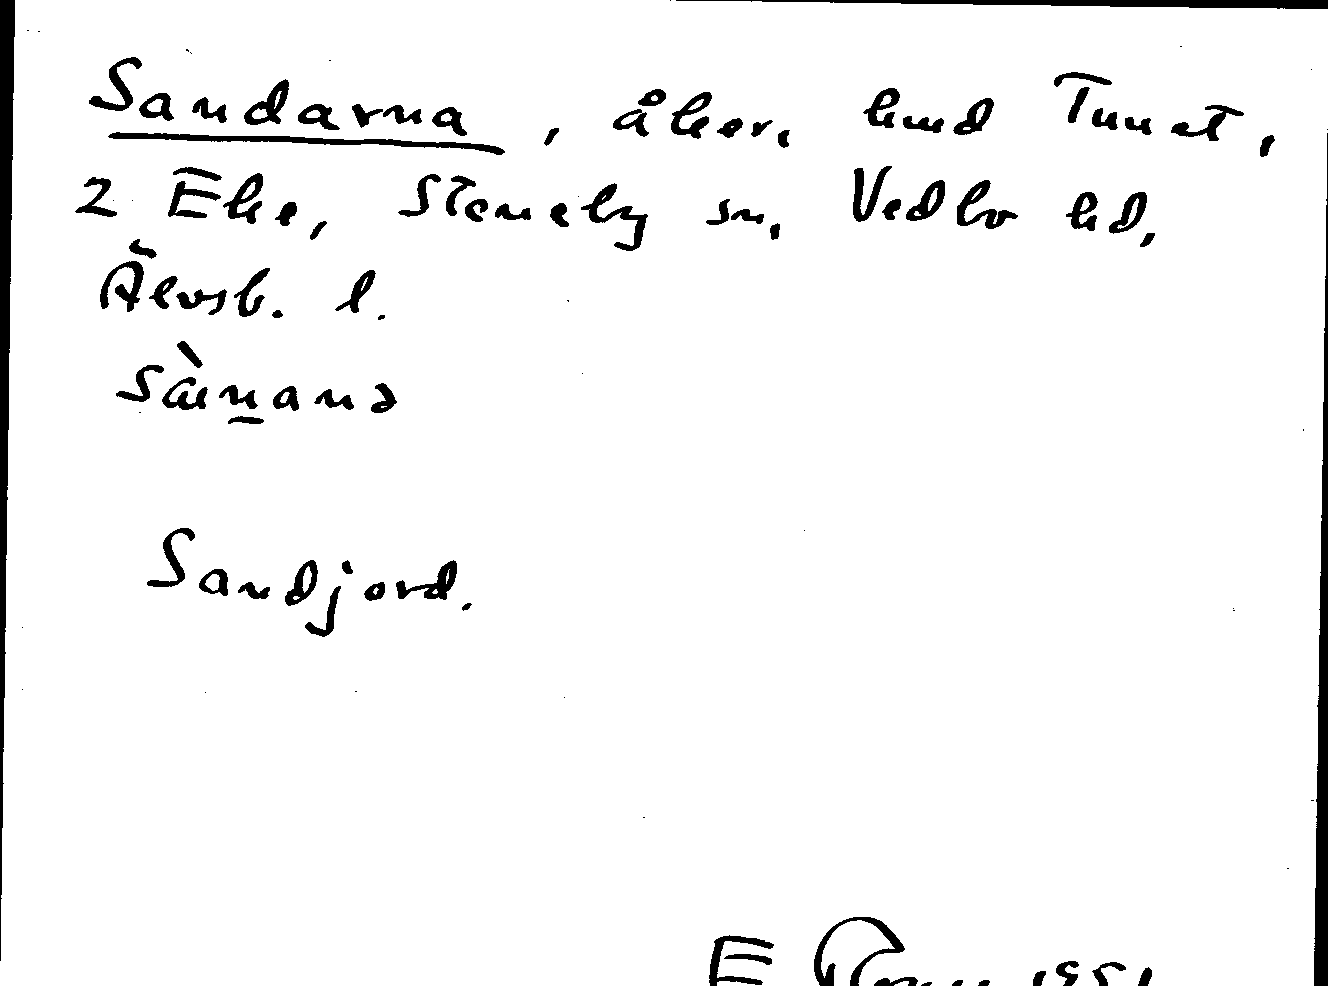 Sandarna, åker, hmd Tunet,
2 Eke, Steneby sn, Vedbo hd,
Älvsb. l.
Sandjord.
E 1951